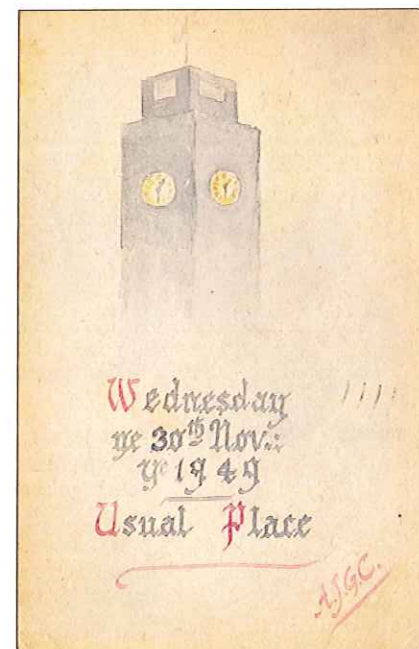 Wednesday
ye 30th Nov:
ye 1949
Usual Place
A.J.G.C.